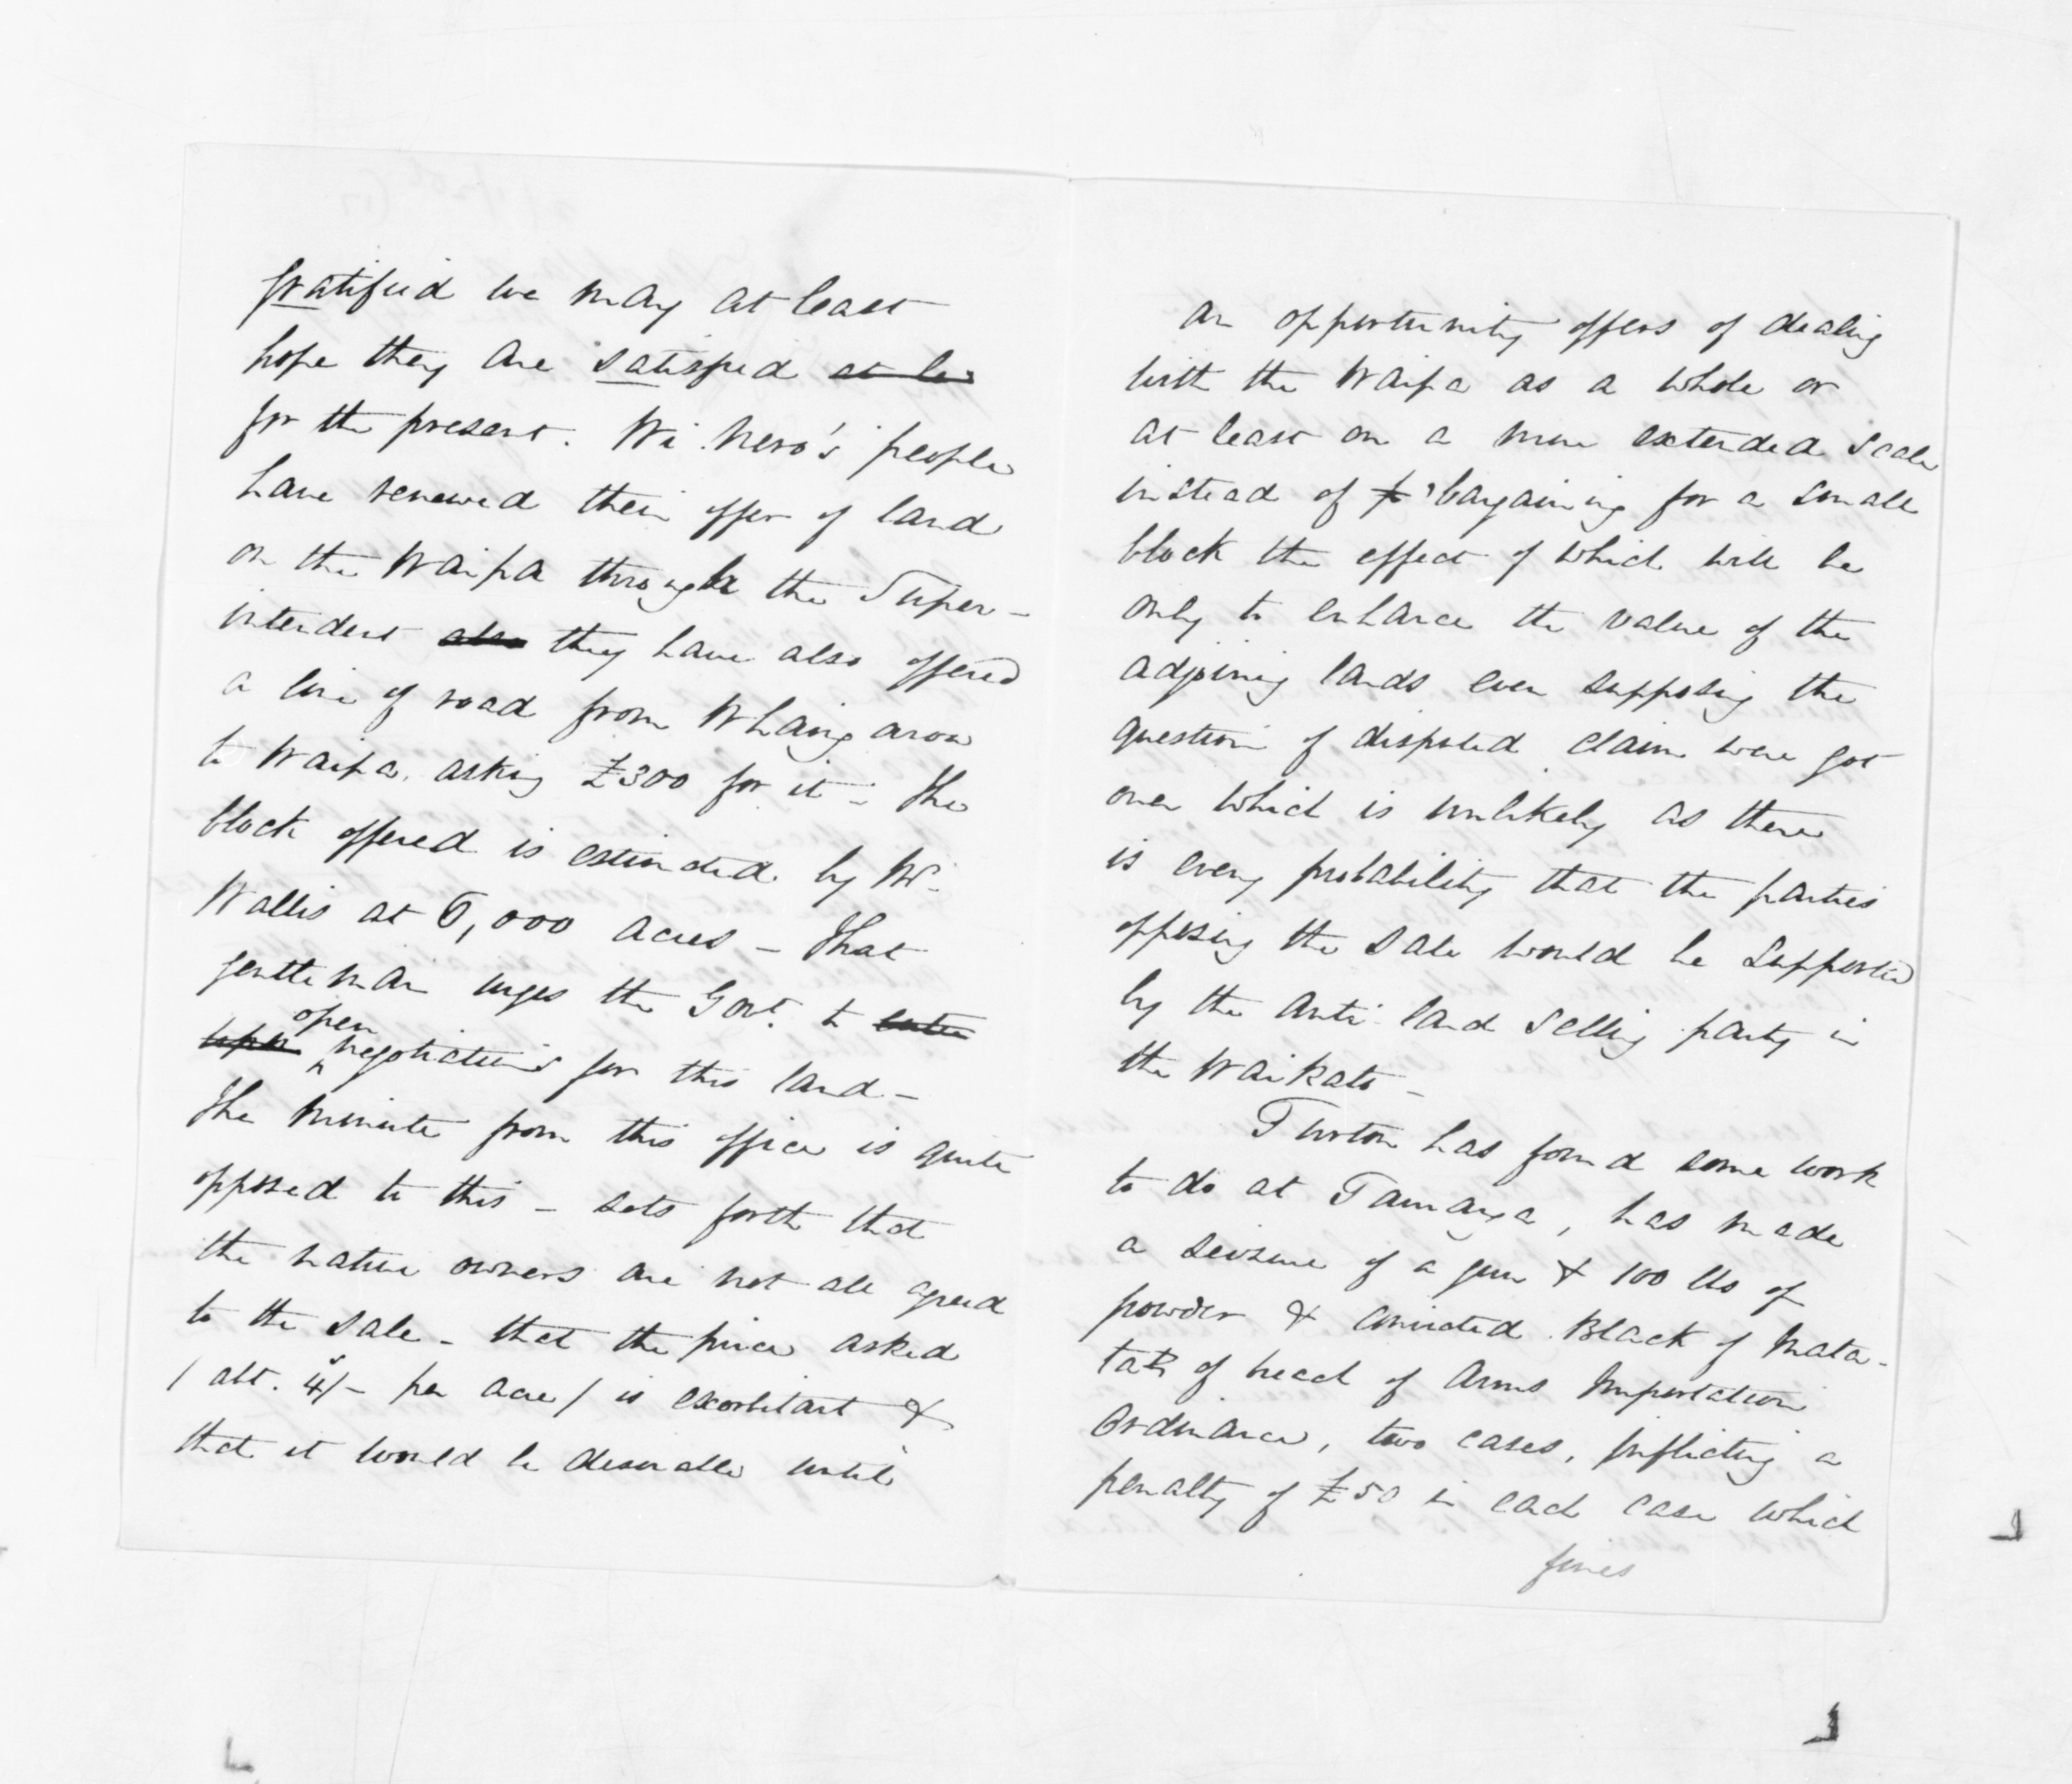 gratified we may at least
hope they are satisfied at leas
for the present. Wi Nero's people
have renewed their offer of land
on the Waipa through the Super-
intendent also they have also offered
a line of road from Whaingaroa
to Waipa, asking £300 for it - The
block offered is estimated by Mr.
Wallis at 6,000 acres - That
gentleman urges the Govt. to enter
upon open negotiations for this land -
The minute from this office is quite
opposed to this - sets forth that
the native owners are not all agreed
to the sale - that the price asked
/ abt. 4s/- per acre / is exorbitant &
that it would be desirable until
an opportunity offers of dealing
with the Waipa as a whole or
at least on a more extended scale
instead of bargaining for a small
block the effect of which will be
only to enhance the value of the
adjoining lands even supposing the
question of disputed claim were got
over which is unlikely as there
is every probability that the parties
opposing the sale would be supported
by the anti land selling party in
the Waikato -
Turton has found some work
to do at Tauranga, has made
a seizure of a gun & 100 lbs of
powder & convicted Black of Mata-
ta of breach of Arms Importation
Ordinance, two cases, inflicting a
penalty of £50 in each case which
fines